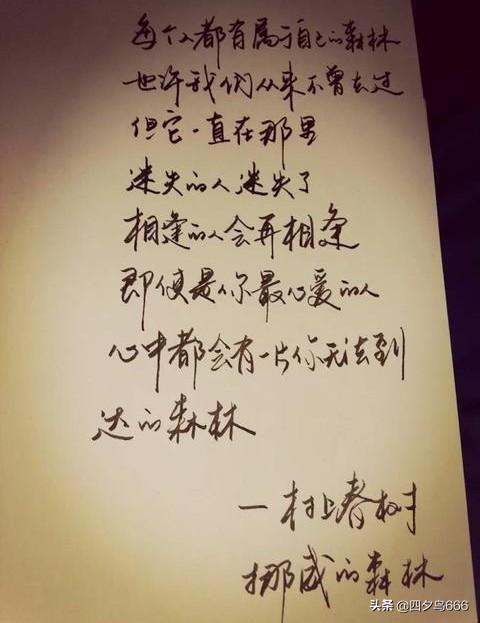 每个人都有属于自己的森林
也许我们从来不曾去过
但它一直在那里
迷失的人迷失了
相逢的人会再相逢
即使是你最心爱的人
心中都会有一片你无法到
达的森林
—村上春树
挪威的森林
头条 @四夕鸟666